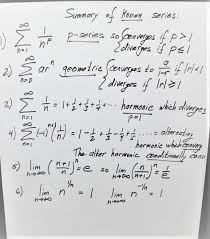 Summary of Known series:
1) ∞ Σ n=1 1/n^p p-series so { converges if p > 1
{ diverges if p ≤ 1
2) ∞ Σ n=0 ar^n geometric { converges to a/(1-r) if |r|<1
{ diverges if |r|≥1
3) ∞ Σ n=1 1/n = 1+1/2+1/3+1/4+... harmonic which diverges
p=1
4) ∞ Σ n=1 (-1)^(1/n) = 1-1/2+1/3-1/4+1/5..... alternating
harmonic which converges
The alter harmonic conditionally conv
5) lim n→∞ ((n+1)/n)^n = e so lim n→∞ (n/(n+1))^n = 1/e
6) lim n→∞ n^(1/n) = 1 lim n→∞ n^(-1/n) = 1